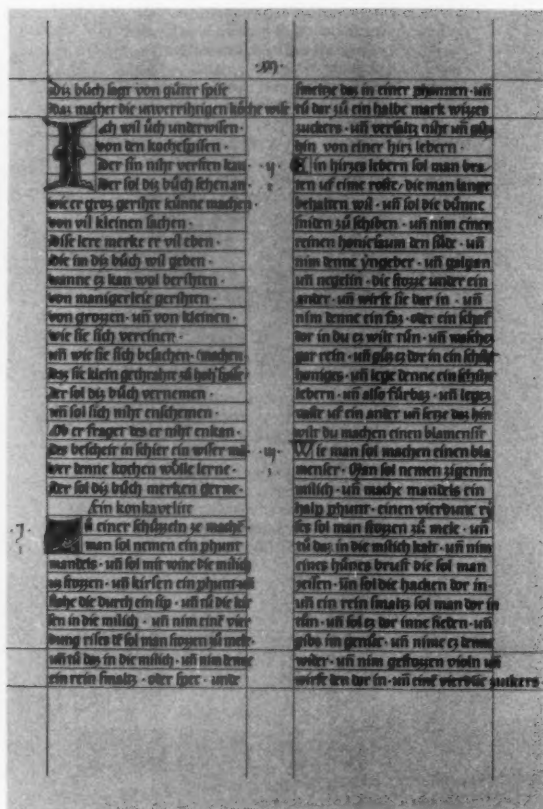 ·m·
Diz bůch sagt von gůter spise
daz machet die unverrihtigen kōche wise
Ich wil ůch underwisen·
von den kochespisen·
der sin niht versten kan·
der sol diz bůch sehen an·
wie er groz gerihte kůnne machen·
von vil kleinen sachen·
dise lere merke er vil eben·
die im diz bůch wil geben·
wanne ez kan wol berihten·
von manigerleie gerihten·
von grozzen·un̄ von kleinen·
wie sie sich vereinen·
un̄ wie sie sich besachen·machen
daz sie klein gerihte zů hoh' spise
der sol diz bůch vernemen·
un̄ sol sich niht enschemen·
ob er fraget des er niht enkan·
des bescheit in schier ein wiser man
wer denne kochen wōlle lerne·
der sol diz bůch merken gerne·
Ein konkavelite
·j·
zů einer schůzzeln ze mache·
man sol nemen ein phunt
mandels·un̄ sol mit wine die milich
uz stozzen·un̄ kirsen ein phunt·un̄
slahe die durch ein sip·un̄ tů die kir
sen in die milich·un̄ nim eine vier
dung rises den sol man stozzen zů mele·
un̄ tů daz in die milich·un̄ nim denne
ein rein smaltz·oder spec·unde
smeltze daz in einer phannen·un̄
tů dar zů ein halbe mark wizzes
zuckers·un̄ versaltz niht un̄ gibz
hin von einer hirz lebern·
·ij·
Ein hirzes lebern sol man bra
ten uf eime roste·die man lange
behalten wil·un̄ sol die důnne
sniden zů schiben·un̄ nim einen
reinen honicsaum den sůde·un̄
nim denne yngeber·un̄ galgan
un̄ negelin·die stozze under ein
ander·un̄ wirfe sie dar in·un̄
nim denne ein faz·oder ein schaf
dor in du ez wilt tůn·un̄ waschez
gar rein·un̄ giuz ez dor in ein schiht
honiges·un̄ lege denne ein schiht
lebern·un̄ also fůrbaz·un̄ legez
vaste uf ein ander un̄ setze daz hin
wilt du machen einen blamensir
·iij·
Wie man sol machen einen bla
menser·Man sol nemen zigenin
milich·un̄ mache mandels ein
halp phunt·einen vierdunc ry
ses sol man stozzen zů mele·un̄
tů daz in die milich kalt·un̄ nim
eines hůnes brust die sol man
zeisen·un̄ sol die hacken dor in·
un̄ ein rein smaltz sol man dor in
tůn·un̄ sol ez dor inne sieden·un̄
gibs im genůc·un̄ nime ez denne
wider·un̄ nim gestozzen violn un̄
wirfe den dor in·un̄ eine vierdūc zuckers·